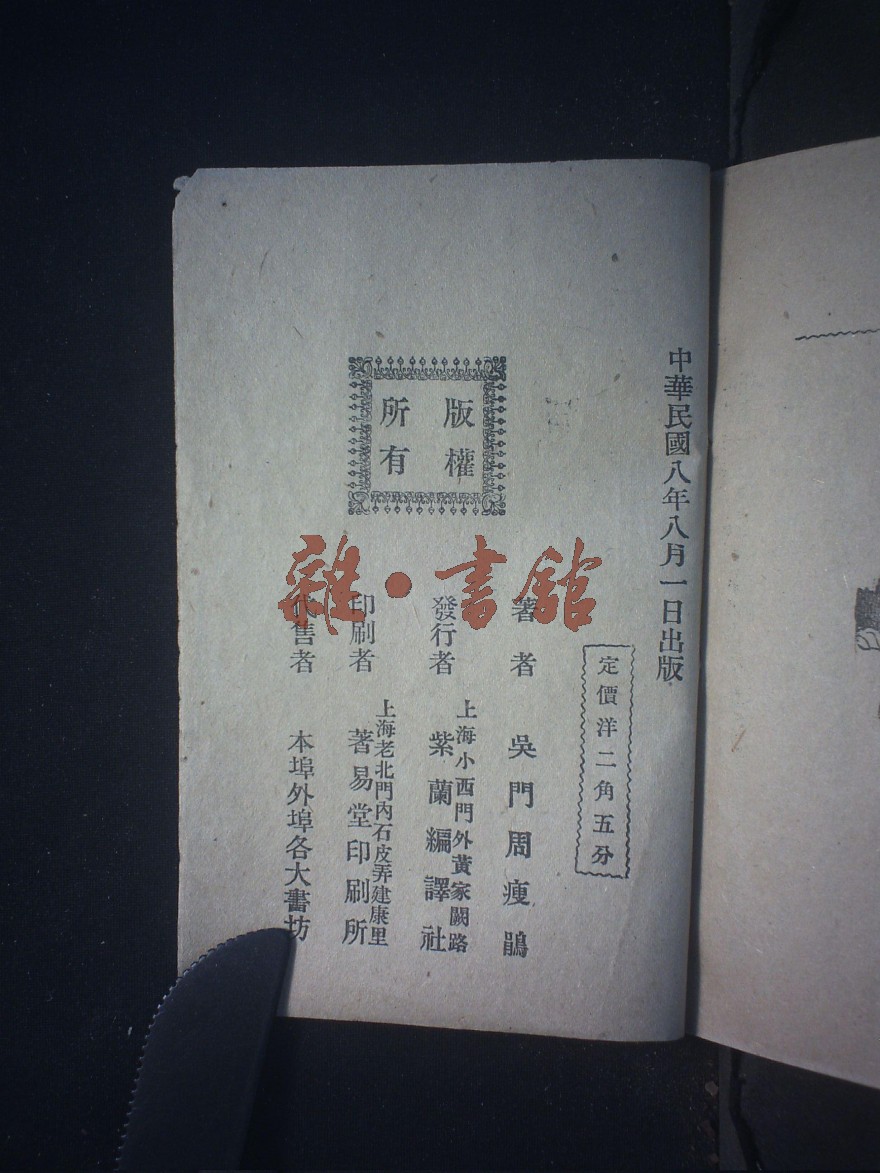 中華民國八年八月一日出版
定價洋二角五分
版權
所有
著者 吳門周瘦鵑
發行者 上海小西門外黃家闕路
紫蘭編譯社
印刷者 上海老北門內石皮弄建康里
著易堂印刷所
代售者 本埠外埠各大書坊
雜·書館